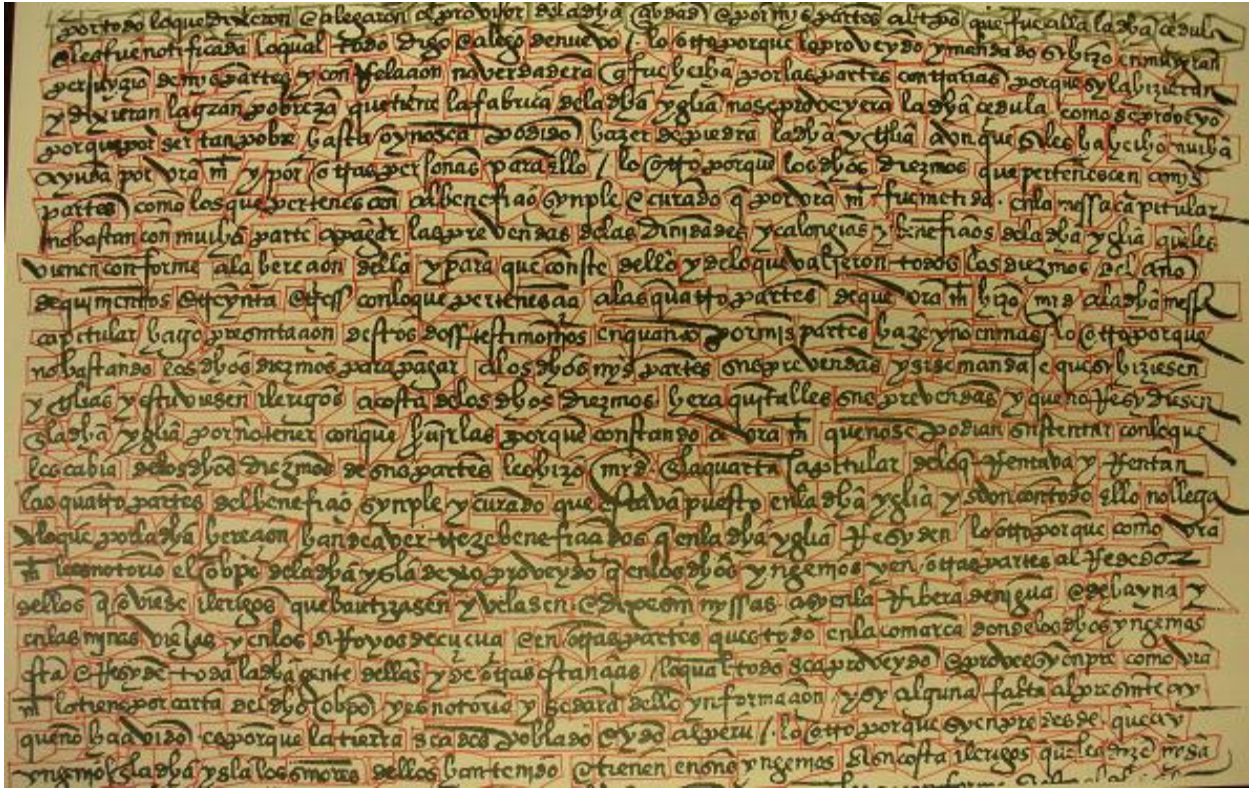 por todo lo que dixeron e alegaron el provisor de la dha cibdad e por mis partes al tpo que fue alla la dha cedula
e les fue notificada lo qual todo digo e alego de nuevo / lo otro porque lo proveydo y mandado se hizo en muy gran
perjuyzio de mis partes y con Relacion no verdadera q fue hecha por las partes contrarias porque sy la hizieran
y dixieran la gran pobreza que tiene la fabrica de la dha yglia no se proveyera la dha cedula como se proveyo
porque por ser tan pobre hasta oy no se a podido hazer de piedra la dha yglia aunque se les ha hecho mucha
ayuda por vra mt y por otras personas para ello / lo otro porque los dhos diezmos que pertenescen a mys
partes como los que pertenescen al beneficio synple e curado q por vra mt fue metida en la messa capitular
no bastan con mucha parte a pagar las prevendas de las dinidades y calongias y beneficios de la dha yglia queles
vienen conforme a la herecion della y para que conste dello y de lo que valieron todos los diezmos del año
de quinientos e treynta e tress con lo que pertenescia a las quatro partes de que vra mt hizo mrd a la dha messa
capitular hago presentacion destos doss testimonios en quanto por mis partes haze y no en mas / lo otro porque
no bastando los dhos diezmos para pagar a los dhos mys partes sus prevendas y si se mandase que se hiziesen
yglias y estuviesen clerigos a costa de los dhos diezmos hera quitalles sus prevendas y que no Resydiesen
en la dha yglia por no tener con que servirlas porque constando a vra mt que no se podian sustentar con lo que
les cabia de los dhos diezmos de sus partes les hizo mrd de la quarta capitular de lo q Rentava y Rentan
las quatro partes del beneficio synple y curado que estava puesto en la dha yglia y aun con todo ello no llega
a lo que por la dha herecion han de aver treze beneficiados q en la dha yglia Resyden lo otro porque como vra
mt les notorio el obpo de la dha ysla dexo proveydo q en los dhos yngenios y en otras partes al Rededor
dellos q oviese clerigos que bautizasen y velasen e dixesen myssas asy en la Ribera de nigua e de hayna y
en las mynas viejas y en los arroyos de cucua e en otras partes questo do en la comarca donde los dhos yngenios
esta e Resyde toda la dha gente dellas y de otras estancias / lo qual todo sea proveydo e provee syenpre como vra
mt lo tiene por carta del dho obpo y es notorio y se dara dello ynformacion y sy alguna falta al presente ay
que no ha avido es porque la tierra se a despoblado e ydo al peru / lo otro porque syenpre desde que ay
yngenios en la dha ysla los señores dellos han tenido e tienen en sus yngenios a su costa clerigos que les dizen mysa